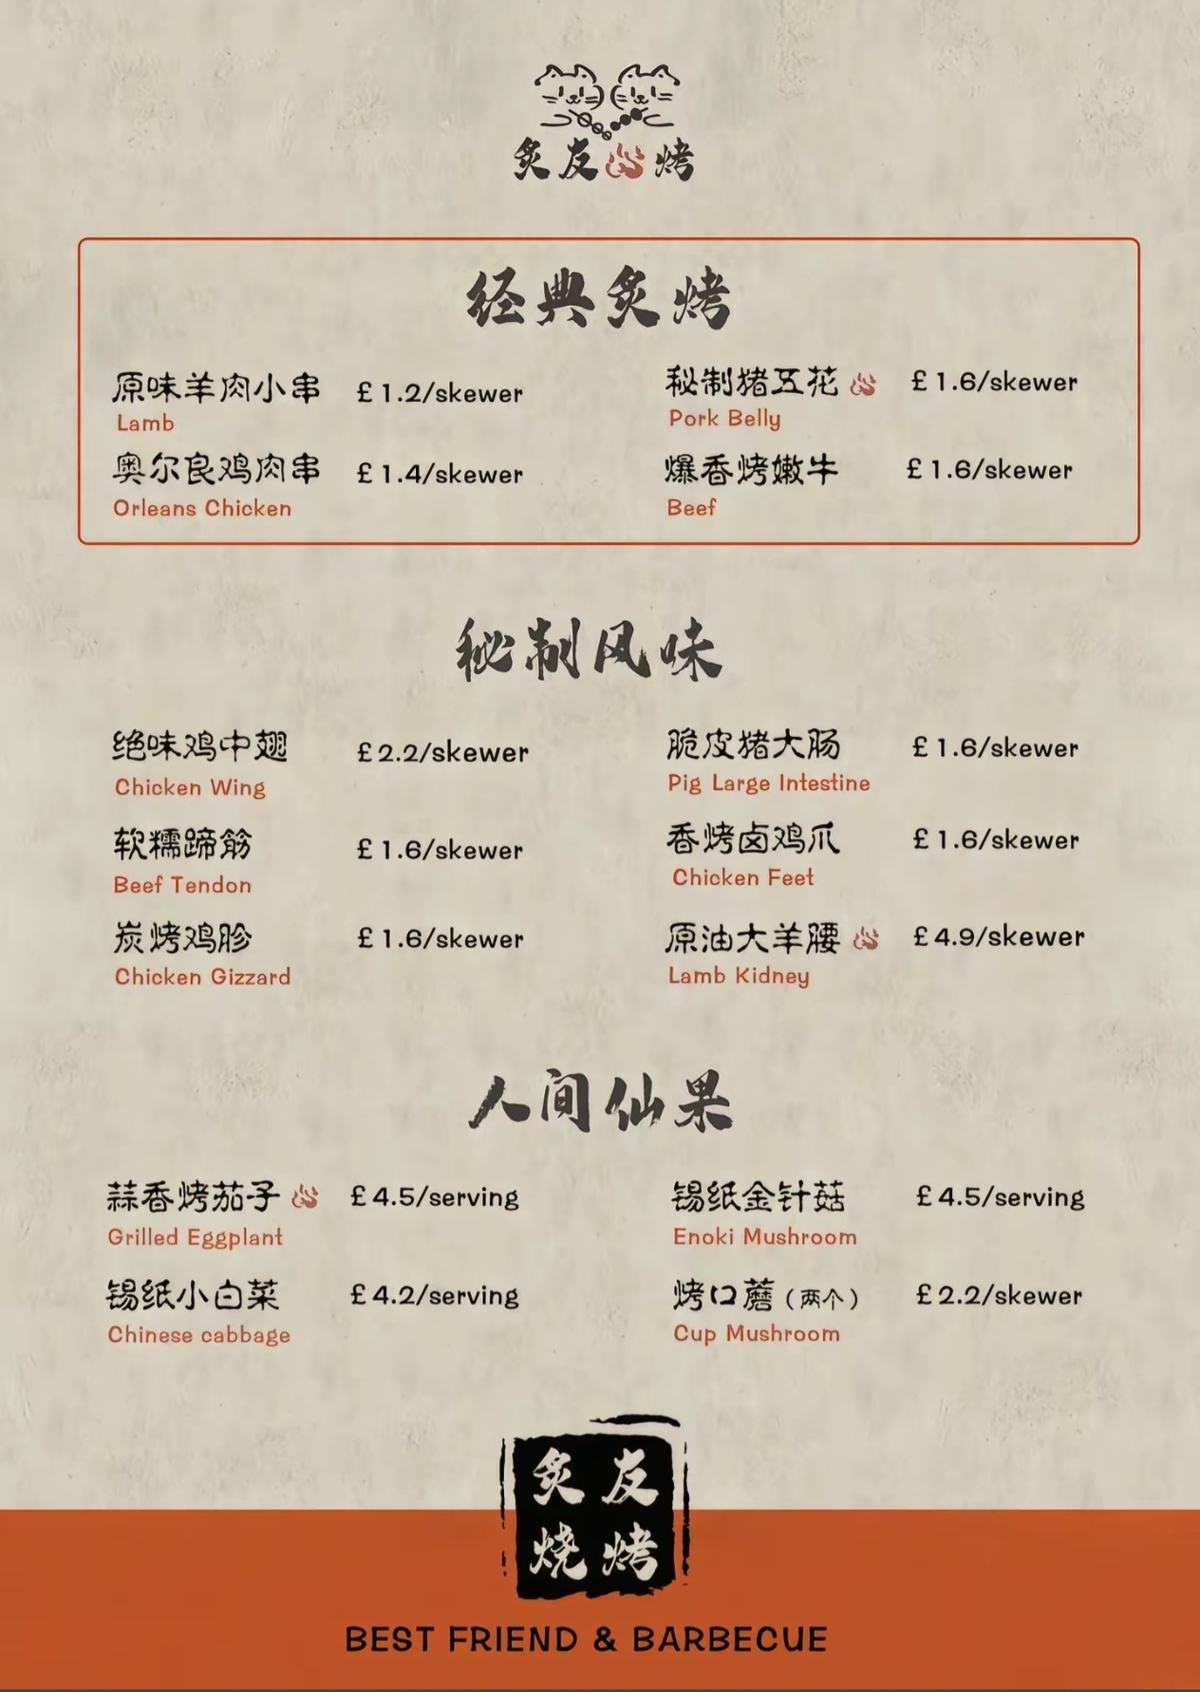 炙友烤
经典炙烤
原味羊肉小串 £1.2/skewer
Lamb
秘制猪五花 £1.6/skewer
Pork Belly
奥尔良鸡肉串 £1.4/skewer
Orleans Chicken
爆香烤嫩牛 £1.6/skewer
Beef
秘制风味
绝味鸡中翅 £2.2/skewer
Chicken Wing
脆皮猪大肠 £1.6/skewer
Pig Large Intestine
软糯蹄筋 £1.6/skewer
Beef Tendon
香烤卤鸡爪 £1.6/skewer
Chicken Feet
炭烤鸡胗 £1.6/skewer
Chicken Gizzard
原油大羊腰 £4.9/skewer
Lamb Kidney
人间仙果
蒜香烤茄子 £4.5/serving
Grilled Eggplant
锡纸金针菇 £4.5/serving
Enoki Mushroom
锡纸小白菜 £4.2/serving
Chinese cabbage
烤口蘑（两个） £2.2/skewer
Cup Mushroom
炙友
烧烤
BEST FRIEND & BARBECUE